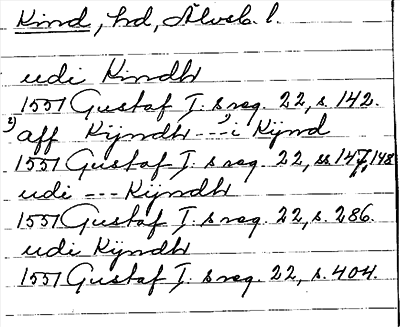 Kind, hd, Älvsb. l.
udi Kindh
1551 Gustaf I:s reg. 22, s. 142.
2) aff Kijndh --- 1) i Kijnd
1551 Gustaf I:s reg. 22, ss. 147, 148
udi --- Kijndh
1551 Gustaf I:s reg. 22, s. 286.
udi Kijndh
1551 Gustaf I:s reg. 22, s. 404.